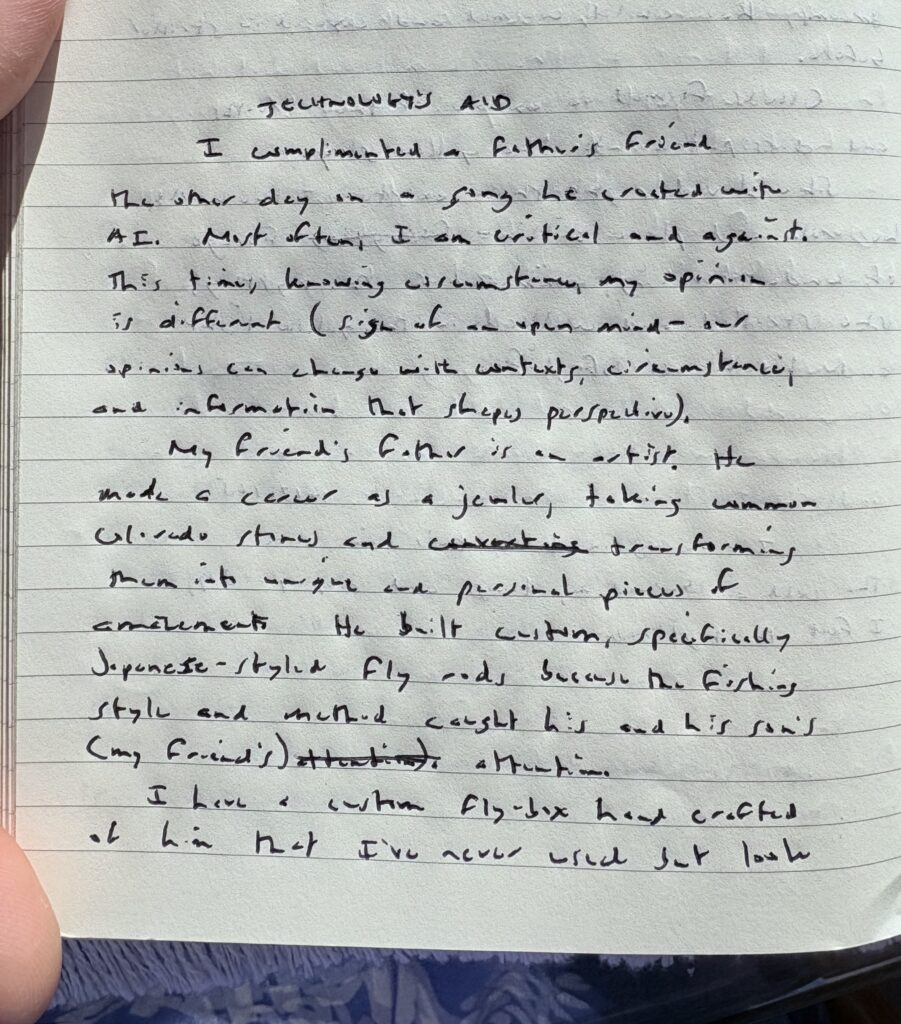 TECHNOLOGY'S AID
I complimented a father's friend
the other day on a song he created with
AI. Most often, I am critical and against.
This time, knowing circumstance, my opinion
is different (sign of an open mind - our
opinions can change with contexts, circumstance,
and information that shapes perspective).
My friend's father is an artist. He
made a career as a jeweler, taking common
Colorado stones and converting transforming
them into unique and personal pieces of
He built custom, specifically
Japanese-styled fly rods because the fishing
style and method caught his and his son's
(my friend's) attention). attention.
I have a custom fly-box hand crafted
of him that I've never used but look